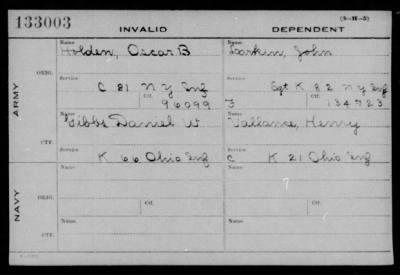 133003
INVALID
DEPENDENT
(3-H-5)
ARMY
ORIG.
Name
Holden, Oscar B
Name
Larkin, John
Service
C 81 N Y Inf
Ctf.
96099
Service
Sgt K 82 N Y Inf
Ctf.
134723
CTF.
Name
Gibbs Daniel W
Name
Vallance, Henry
Service
K 66 Ohio Inf
Service
K 21 Ohio Inf
NAVY
ORIG.
Name
Name
Service
Ctf.
Service
Ctf.
CTF.
Name
Name